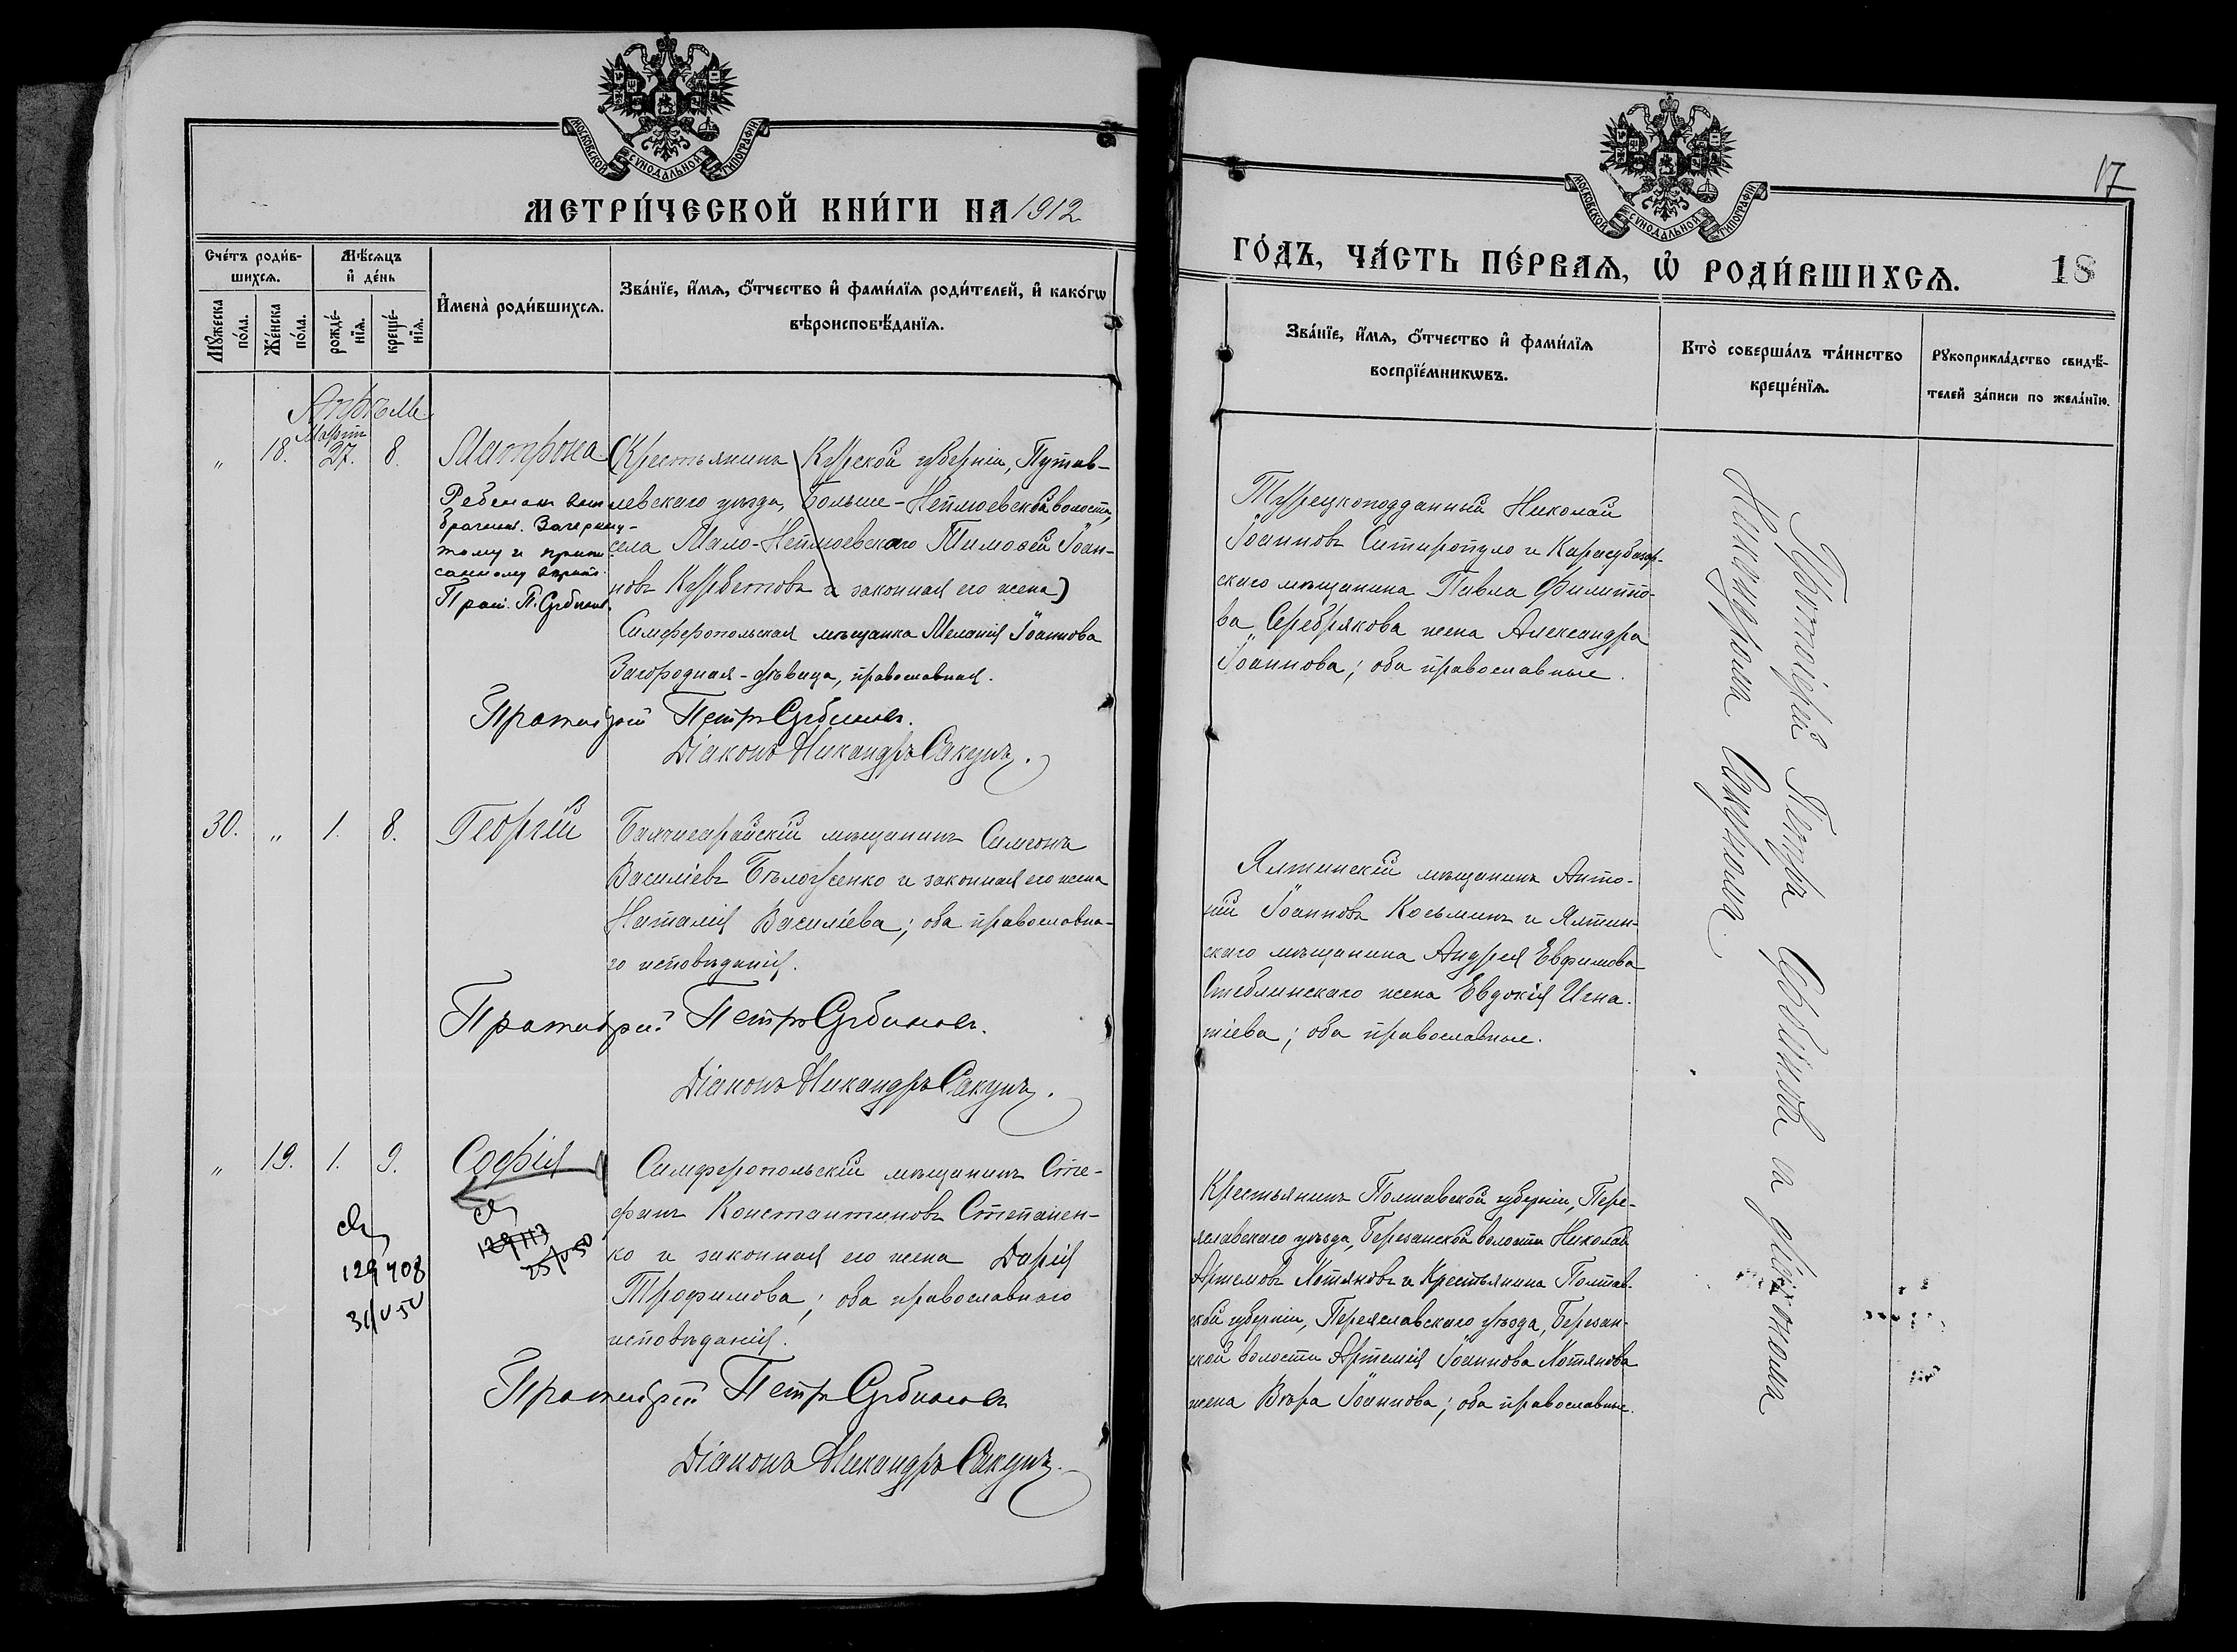 МОСКОВСКОЙ СѴНОДАЛЬНОЙ ТИПОГРАФІИ
МЕТРИ́ЧЕСКОЙ КНИ́ГИ НА 1912
Сче́тъ роди́в-
шихсѧ.
Мѣ́сѧцъ
и҆ де́нь
Мꙋ́жеска
по́ла.
Же́нска
по́ла.
рожде́-
нїѧ.
креще́-
нїѧ.
И҆мена̀ роди́вшихсѧ.
Зва́нїе, и҆́мѧ, ѻ҆́тчество и҆ фами́лїѧ роди́телей, и҆ како́гѡ
вѣроисповѣ́данїѧ.
Апрѣль
Мартъ
„ 18. 27. 8. Матрона
Ребенокъ вне
брачный. Зачеркну-
тому и припи-
санному верить.
Прот. П. Сербиновъ.
(Крестьянинъ Курской губерніи, Путив-
левскаго уѣзда, Больше-Неплюевской волости,
села Мало-Неплюевскаго Тимоѳей Іоан-
новъ Курбетовъ и законная его жена)
Симферопольская мѣщанка Меланія Іоаннова
Загородная - дѣвица, православная.
Протоіерей Петръ Сербиновъ.
Діаконъ Никандръ Сакунъ.
30. „ 1. 8. Георгій
Бахчисарайскій мѣщанинъ Симеонъ
Василіевъ Бѣлоусенко и законная его жена
Наталія Василіева; оба православна-
го исповѣданія.
Протоіерей Петръ Сербиновъ.
Діаконъ Никандръ Сакунъ.
„ 19. 1. 9. Софія
129408
31/V 50
129117
25/V 50
Симферопольскій мѣщанинъ Сте-
фанъ Константиновъ Степанен-
ко и законная его жена Дарія
Трофимова; оба православнаго
исповѣданія.
Протоіерей Петръ Сербиновъ
Діаконъ Никандръ Сакунъ.
17
МОСКОВСКОЙ СѴНОДАЛЬНОЙ ТИПОГРАФІИ
ГО́ДЪ, ЧА́СТЬ ПЕ́РВАѦ, Ѽ РОДИ́ВШИХСѦ.
18
Зва́нїе, и҆́мѧ, ѻ҆́тчество и҆ фами́лїѧ
воспрїе́мникѡвъ.
Кто̀ соверша́лъ та́инство
креще́нїѧ.
Рꙋкоприкла́дство свидѣ́-
телей за́писи по жела́нїю.
Турецкоподданный Николай
Іоанновъ Ситиропуло и Карасубазар-
скаго мѣщанина Павла Филиппо-
ва Серебрякова жена Александра
Іоаннова; оба православные.
Ялтинскій мѣщанинъ Анто-
ній Іоанновъ Косьминъ и Ялтин-
скаго мѣщанина Андрея Евфимова
Стеблинскаго жена Евдокія Игна-
тіева; оба православные.
Крестьянинъ Полтавской губерніи, Пере-
яславскаго уѣзда, Березанской волости Николай
Артемовъ Хотяновъ и Крестьянина Полтав-
ской губерніи, Переяславскаго уѣзда, Березан-
ской волости Артемія Іоаннова Хотянова
жена Вѣра Іоаннова; оба православные.
Протоіерей Петръ Сербиновъ и діакономъ
Никандромъ Сакуномъ.